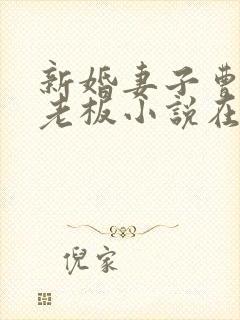 新婚妻子曹
老板小说在
倪家